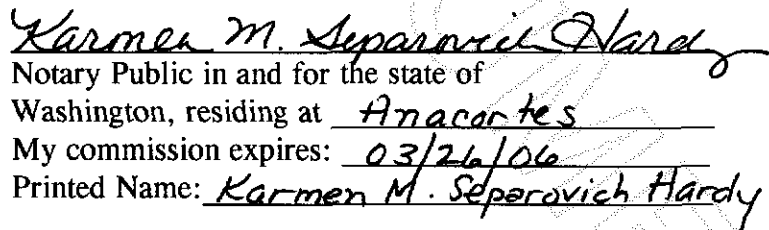 Karmen M. Separovich Hardy
Notary Public in and for the state of
Washington, residing at Anacortes
My commission expires: 03/26/06
Printed Name: Karmen M. Separovich Hardy